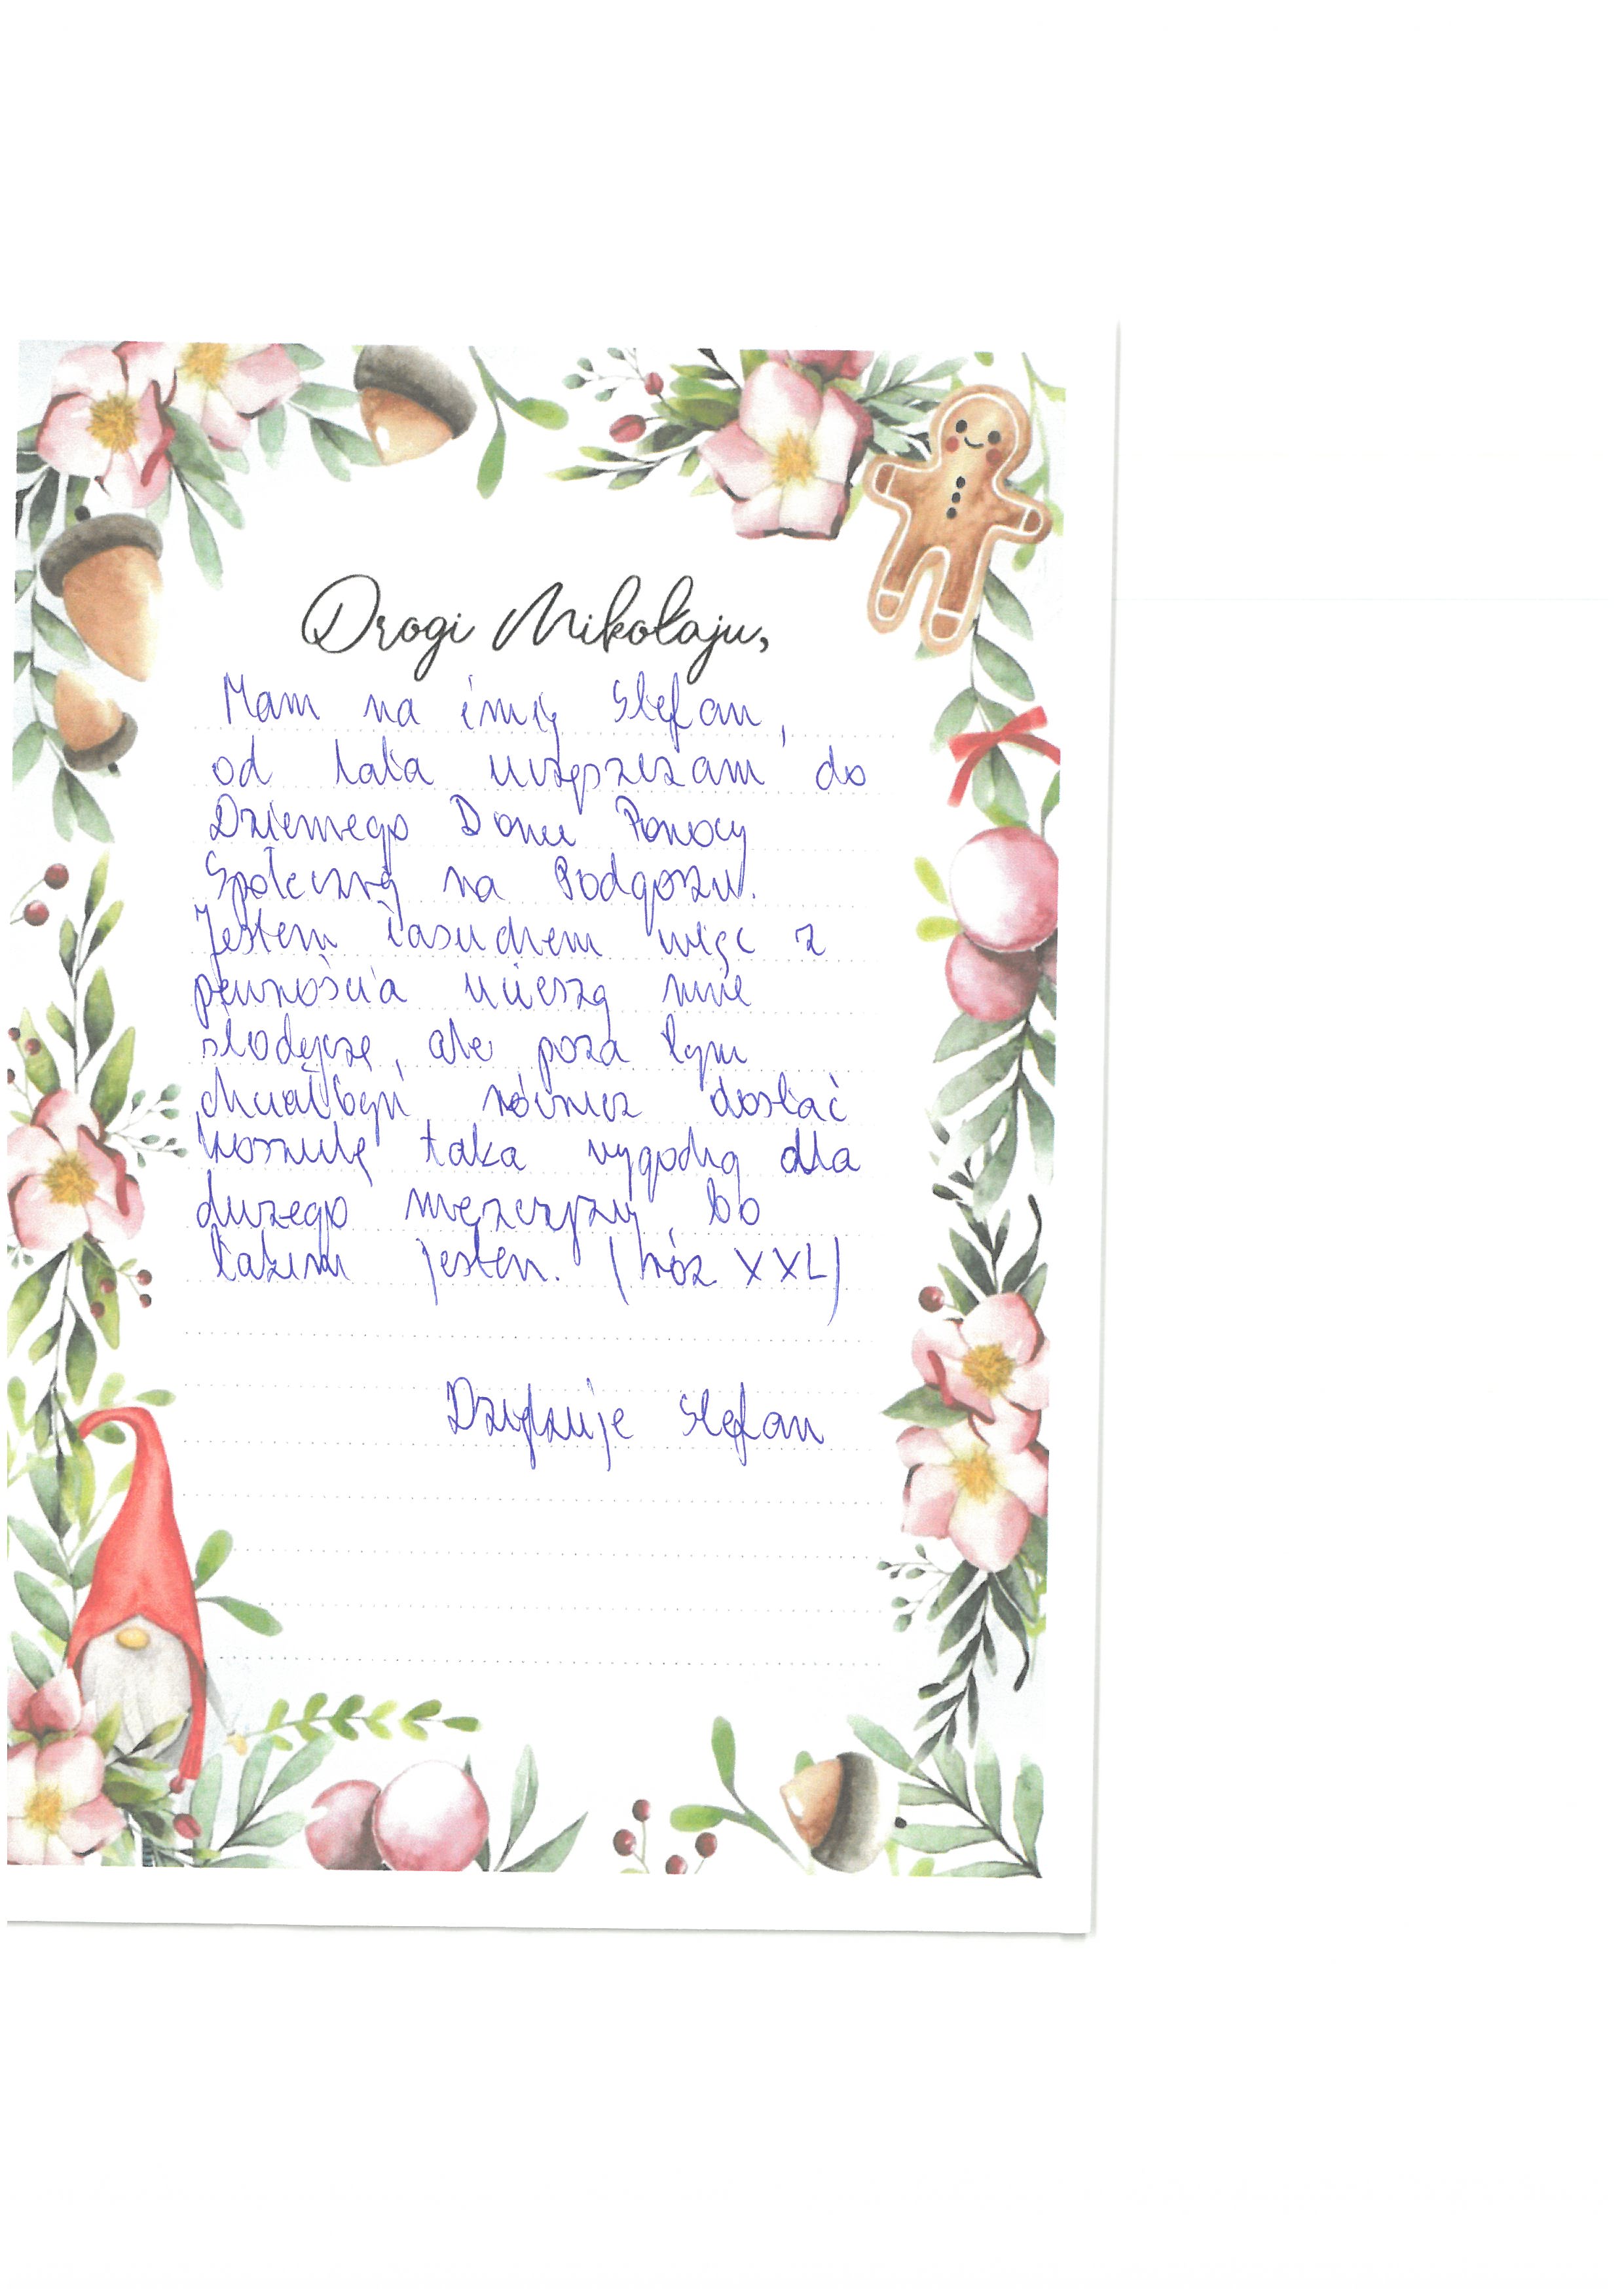 Drogi Mikołaju,
Mam na imię Stefan,
od lata uczęszczam do
Dziennego Domu Pomocy
Społecznej na Podgórzu.
Jestem łasuchem więc z
pewnościa ucieszą mnie
słodycze, ale poza tym
chciałbym również dostać
koszulę taka wygodną dla
dużego mężczyzny, bo
takim jestem. (            XXL)
Dziękuję Stefan